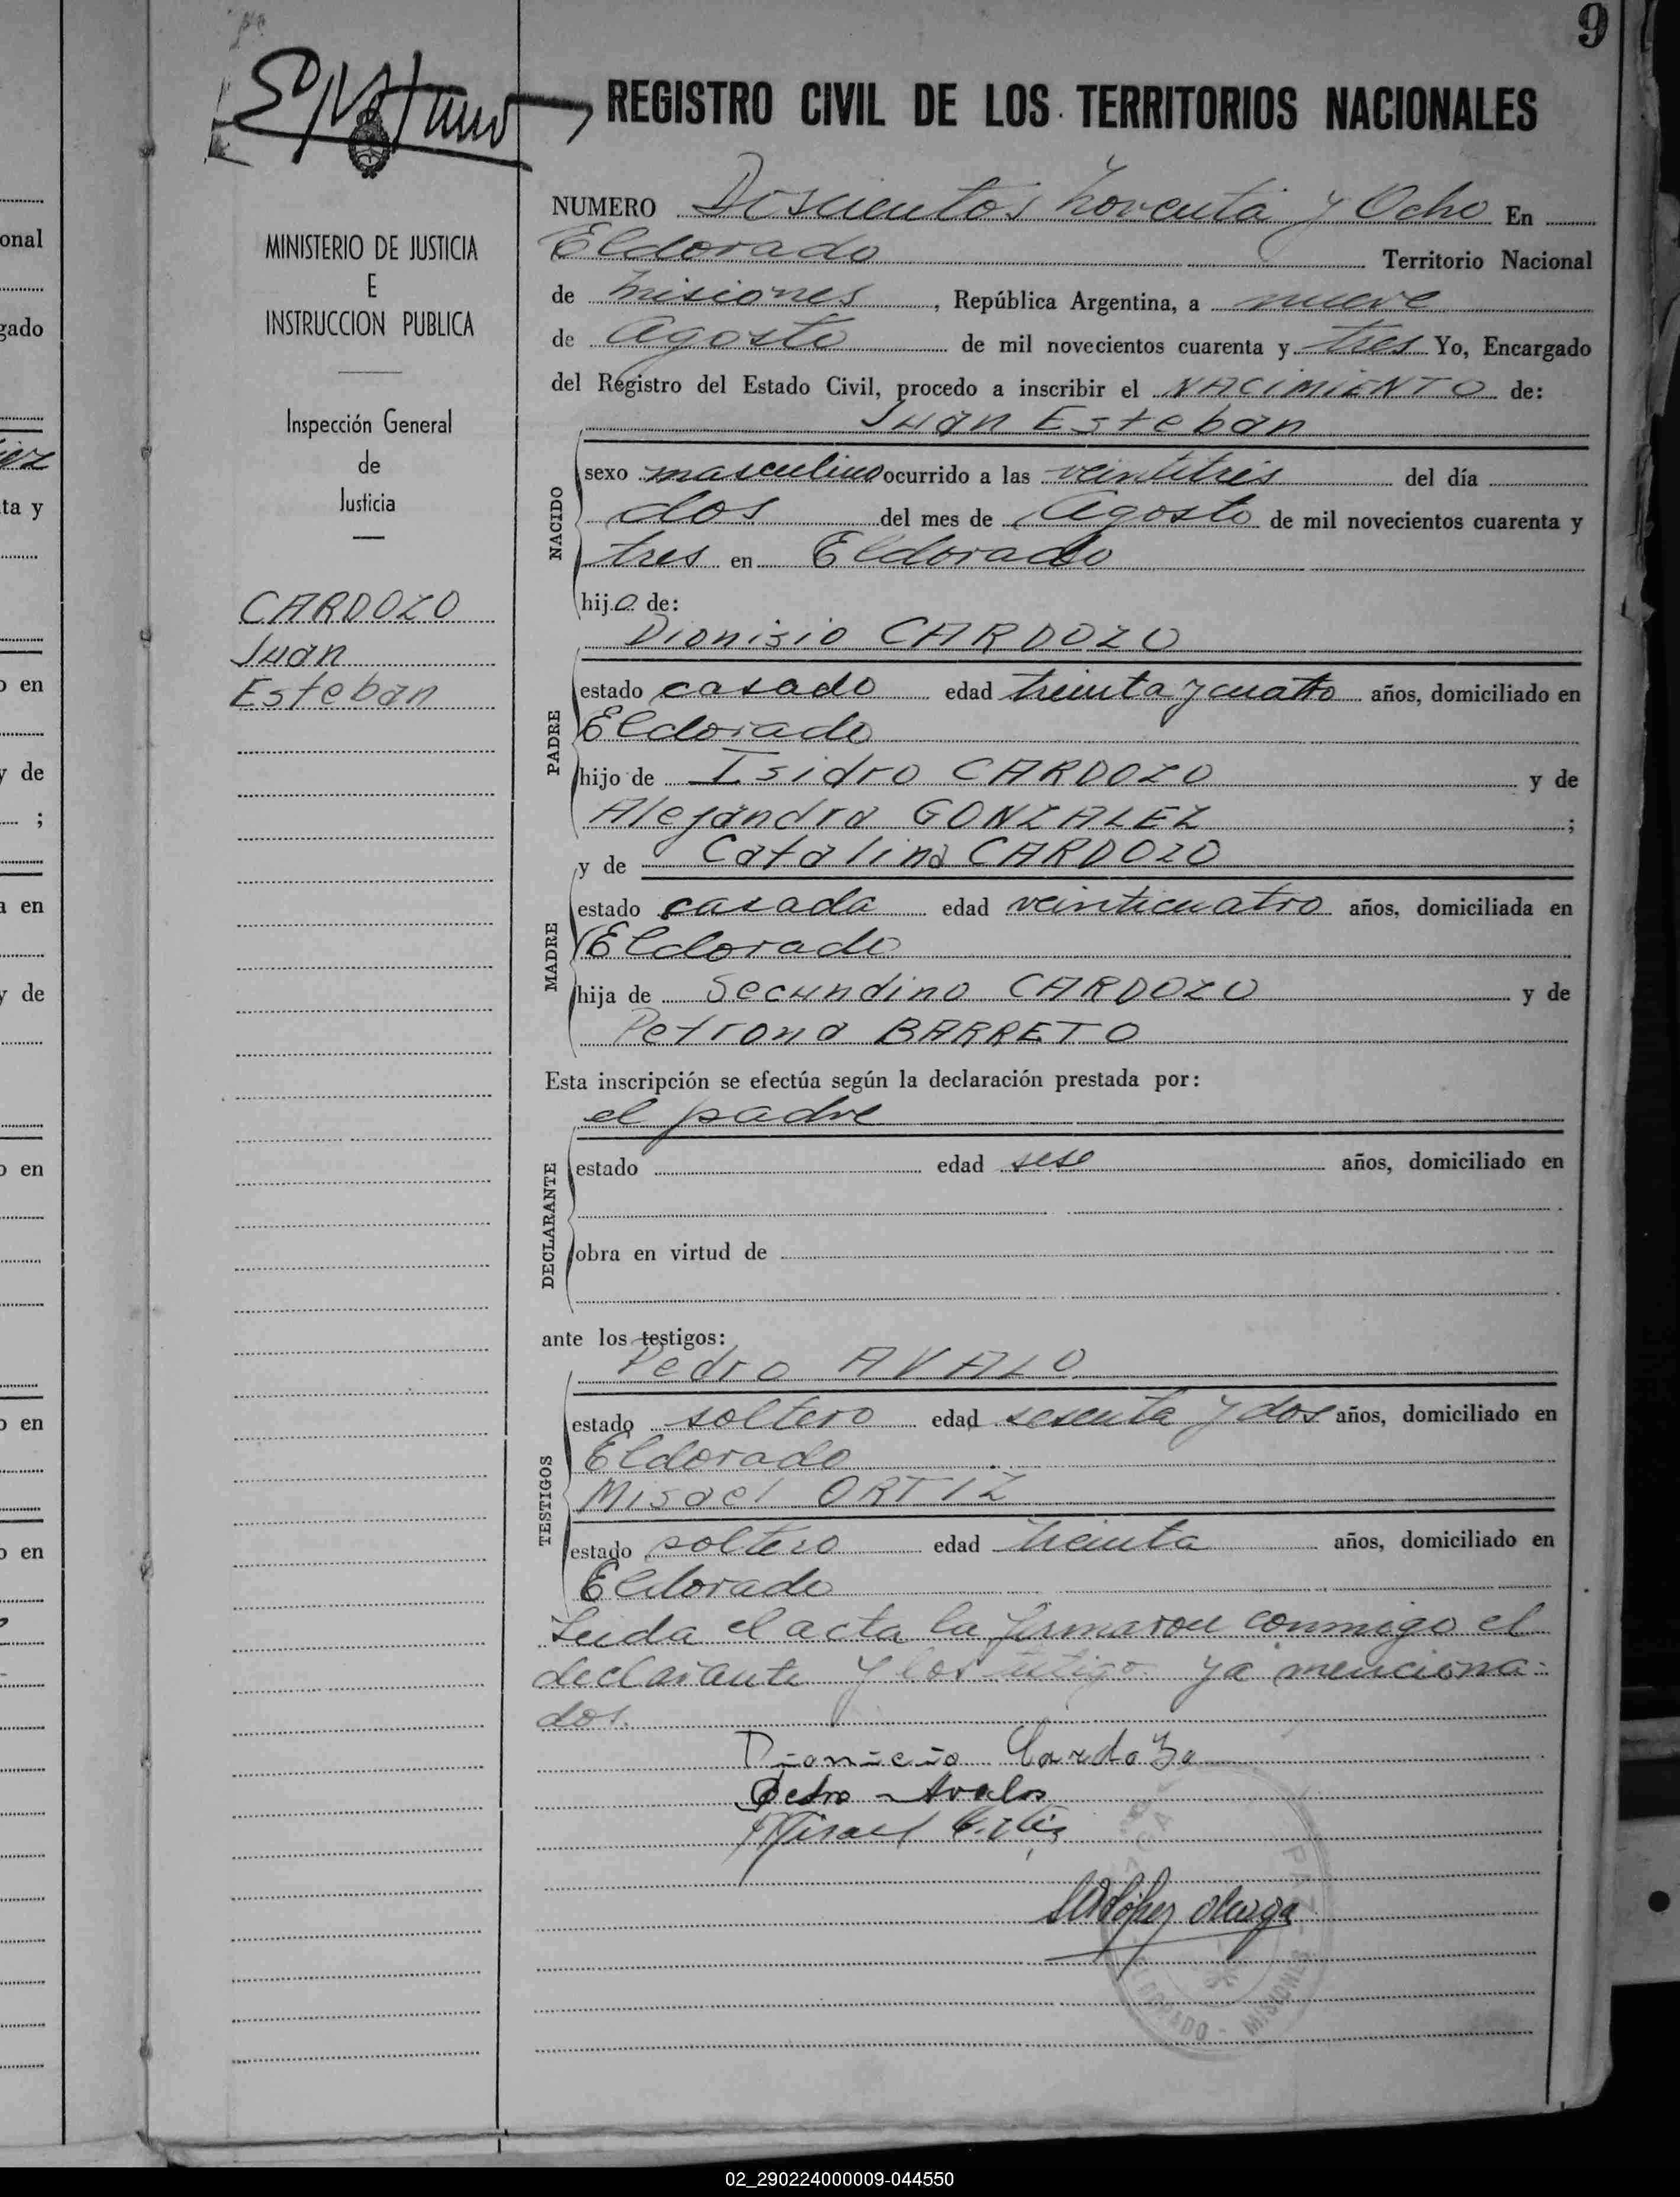 9
REGISTRO CIVIL DE LOS TERRITORIOS NACIONALES
MINISTERIO DE JUSTICIA
E
INSTRUCCION PUBLICA
Inspección General
de
Justicia
CARDOZO
Juan
Esteban
NUMERO Doscientos noventa y Ocho En
Eldorado Territorio Nacional
de Misiones, República Argentina, a nueve
de Agosto de mil novecientos cuarenta y tres Yo, Encargado
del Registro del Estado Civil, procedo a inscribir el NACIMIENTO de:
Juan Esteban
NACIDO
sexo masculino ocurrido a las veintitrés del día
dos del mes de Agosto de mil novecientos cuarenta y
tres en Eldorado
hijo de:
Dionisio CARDOZO
PADRE
estado casado edad treinta y cuatro años, domiciliado en
Eldorado
hijo de Isidro CARDOZO y de
Alejandra GONZALEZ ;
y de Catalina CARDOZO
MADRE
estado casada edad veinticuatro años, domiciliada en
Eldorado
hija de Secundino CARDOZO y de
Petrona BARRETO
Esta inscripción se efectúa según la declaración prestada por:
el padre
DECLARANTE
estado edad sese años, domiciliado en
obra en virtud de
ante los testigos:
Pedro AVALO
TESTIGOS
estado soltero edad sesenta y dos años, domiciliado en
Eldorado
Misael ORTIZ
estado soltero edad treinta años, domiciliado en
Eldorado
Leida el acta la firmaron conmigo el
declarante y los testigo ya menciona-
dos.
Dionicio Cardozo
Pedro Avalos
Misael Ortiz
PAZ
ELDORADO - MISIONES
02_290224000009-044550